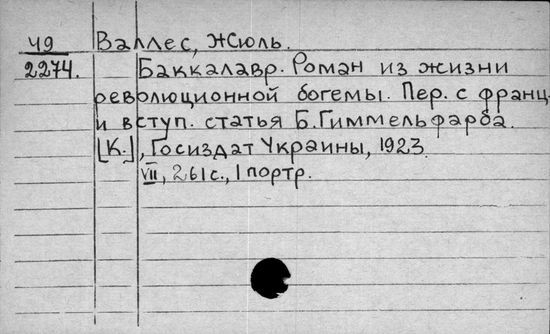 Ч9 Валлес, Жюль.
2274. Баккалавр. Роман из жизни
революционной богемы. Пер. с франц.
и вступ. статья Б. Гиммельфарба.
[К.], Госиздат Украины, 1923.
VII, 261 с., 1 портр.